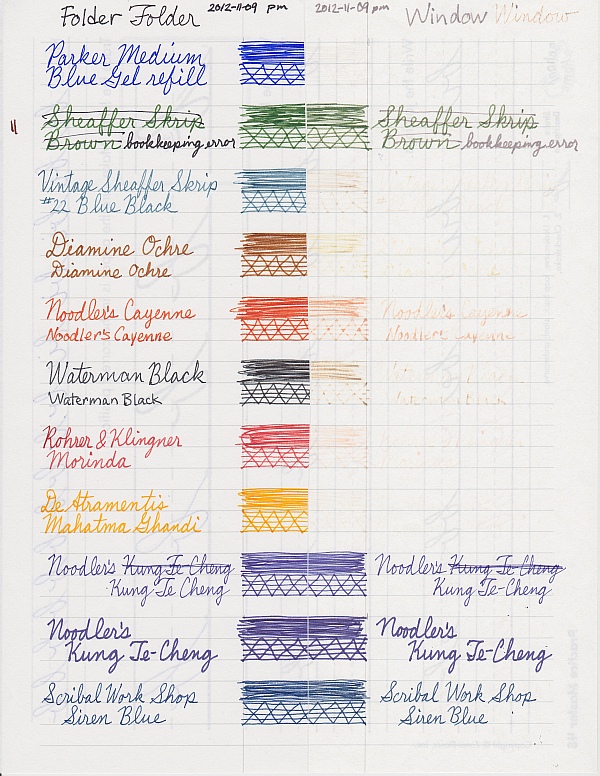 Folder Folder 2012-11-09 pm 2012-11-09 pm Window Window
Parker Medium
Blue Gel refill
Sheaffer Skrip Sheaffer Skrip
Brown bookkeeping error Brown bookkeeping error
11
Vintage Sheaffer Skrip
#22 Blue Black
Diamine Ochre
Diamine Ochre
Noodler's Cayenne Noodler's Cayenne
Noodler's Cayenne Noodler's Cayenne
Waterman Black
Waterman Black
Rohrer & Klingner
Morinda
De Atramentis
Mahatma Ghandi
Noodler's Kung Te-Cheng Noodler's Kung Te-Cheng
Kung Te Cheng Kung Te-Cheng
Noodler's Noodler's
Kung Te-Cheng Kung Te-Cheng
Scribal Work Shop Scribal Work Shop
Siren Blue Siren Blue